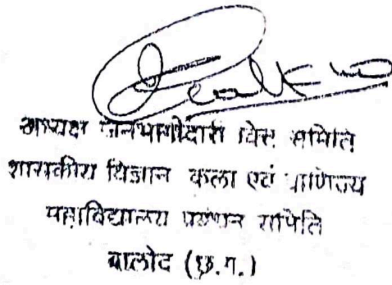 अध्यक्ष जनभागीदारी वित्त समिति
शासकीय विज्ञान कला एवं वाणिज्य
महाविद्यालय प्रबंधन समिति
बालोद (छ.ग.)